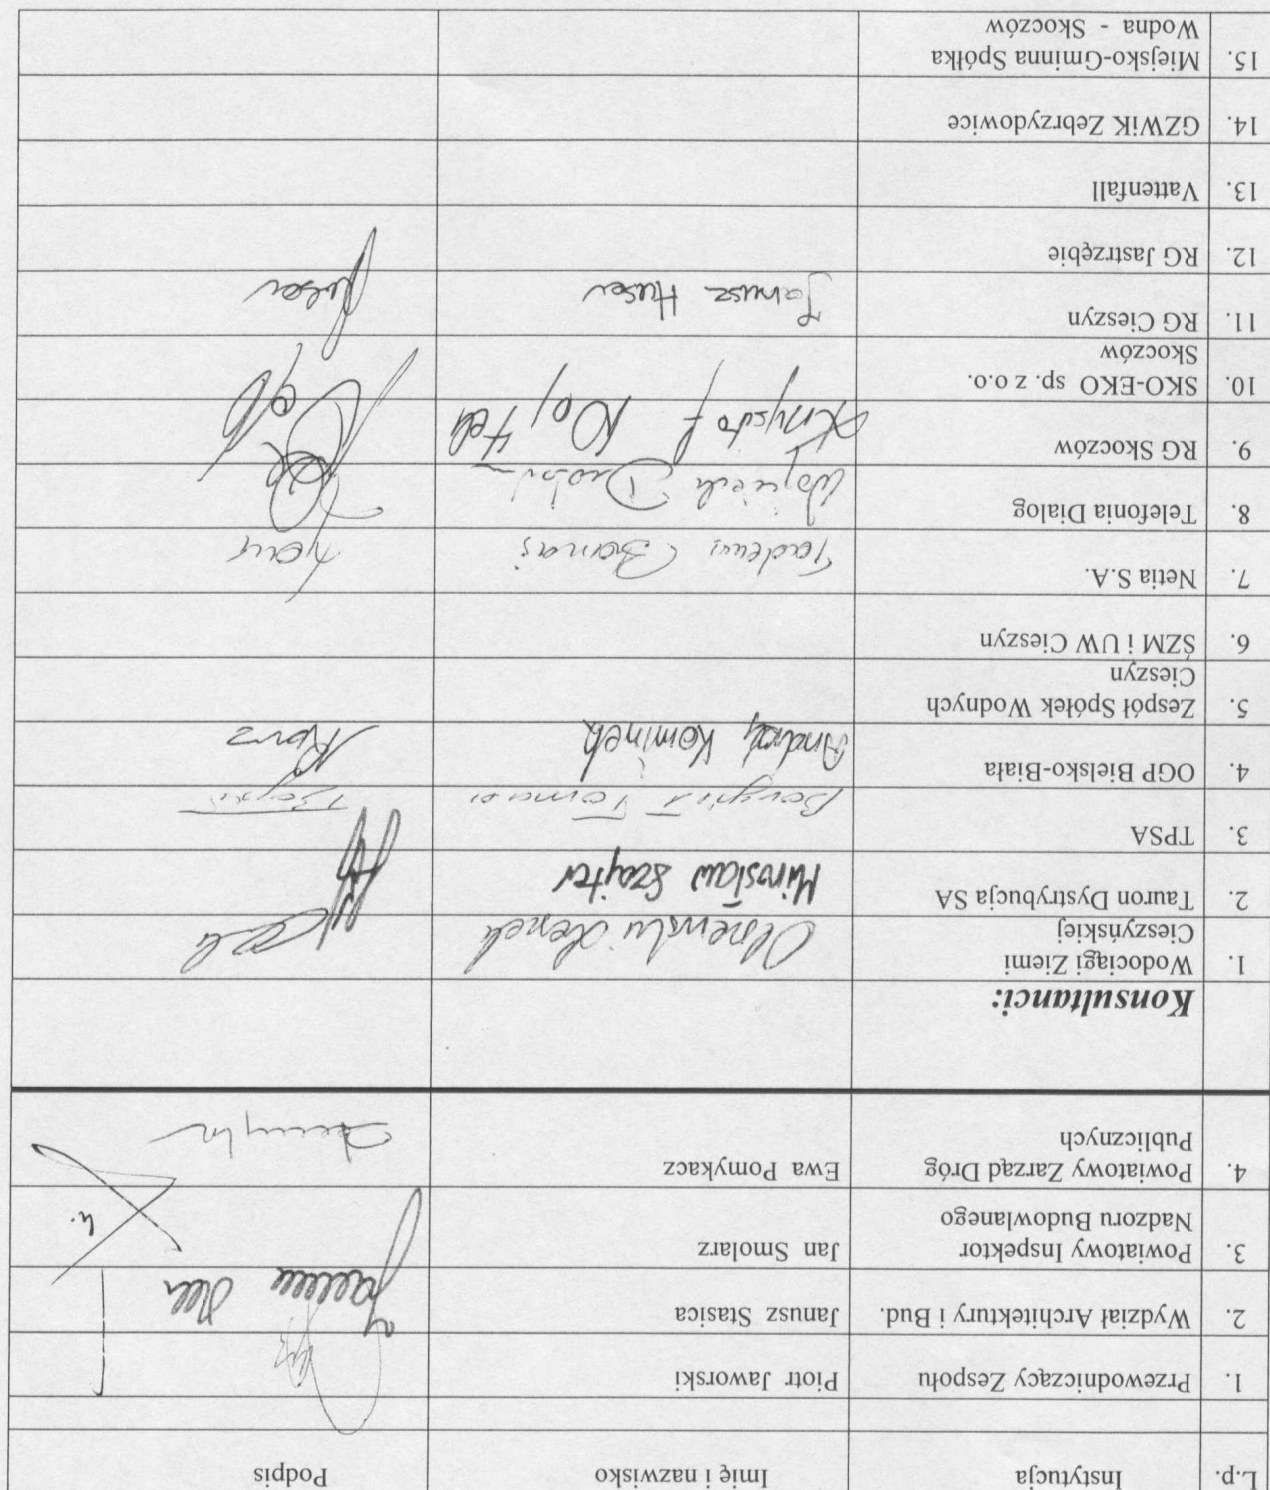 L.p. Instytucja Imię i nazwisko Podpis
1. Przewodniczący Zespołu Piotr Jaworski
2. Wydział Architektury i Bud. Janusz Stasica
3. Powiatowy Inspektor Jan Smolarz
Nadzoru Budowlanego
4. Powiatowy Zarząd Dróg Ewa Pomykacz
Publicznych
Konsultanci:
1. Wodociągi Ziemi
Cieszyńskiej
2. Tauron Dystrybucja SA Mirosław Szajter
3. TPSA
4. OGP Bielsko-Biała Andrzej Kominek
5. Zespół Spółek Wodnych
Cieszyn
6. ŚZM i UW Cieszyn
7. Netia S.A. Tadeusz
8. Telefonia Dialog Wojciech
9. RG Skoczów Krzysztof
10. SKO-EKO sp. z o.o.
Skoczów
11. RG Cieszyn Janusz Huser
12. RG Jastrzębie
13. Vattenfall
14. GZWiK Zebrzydowice
15. Miejsko-Gminna Spółka
Wodna - Skoczów